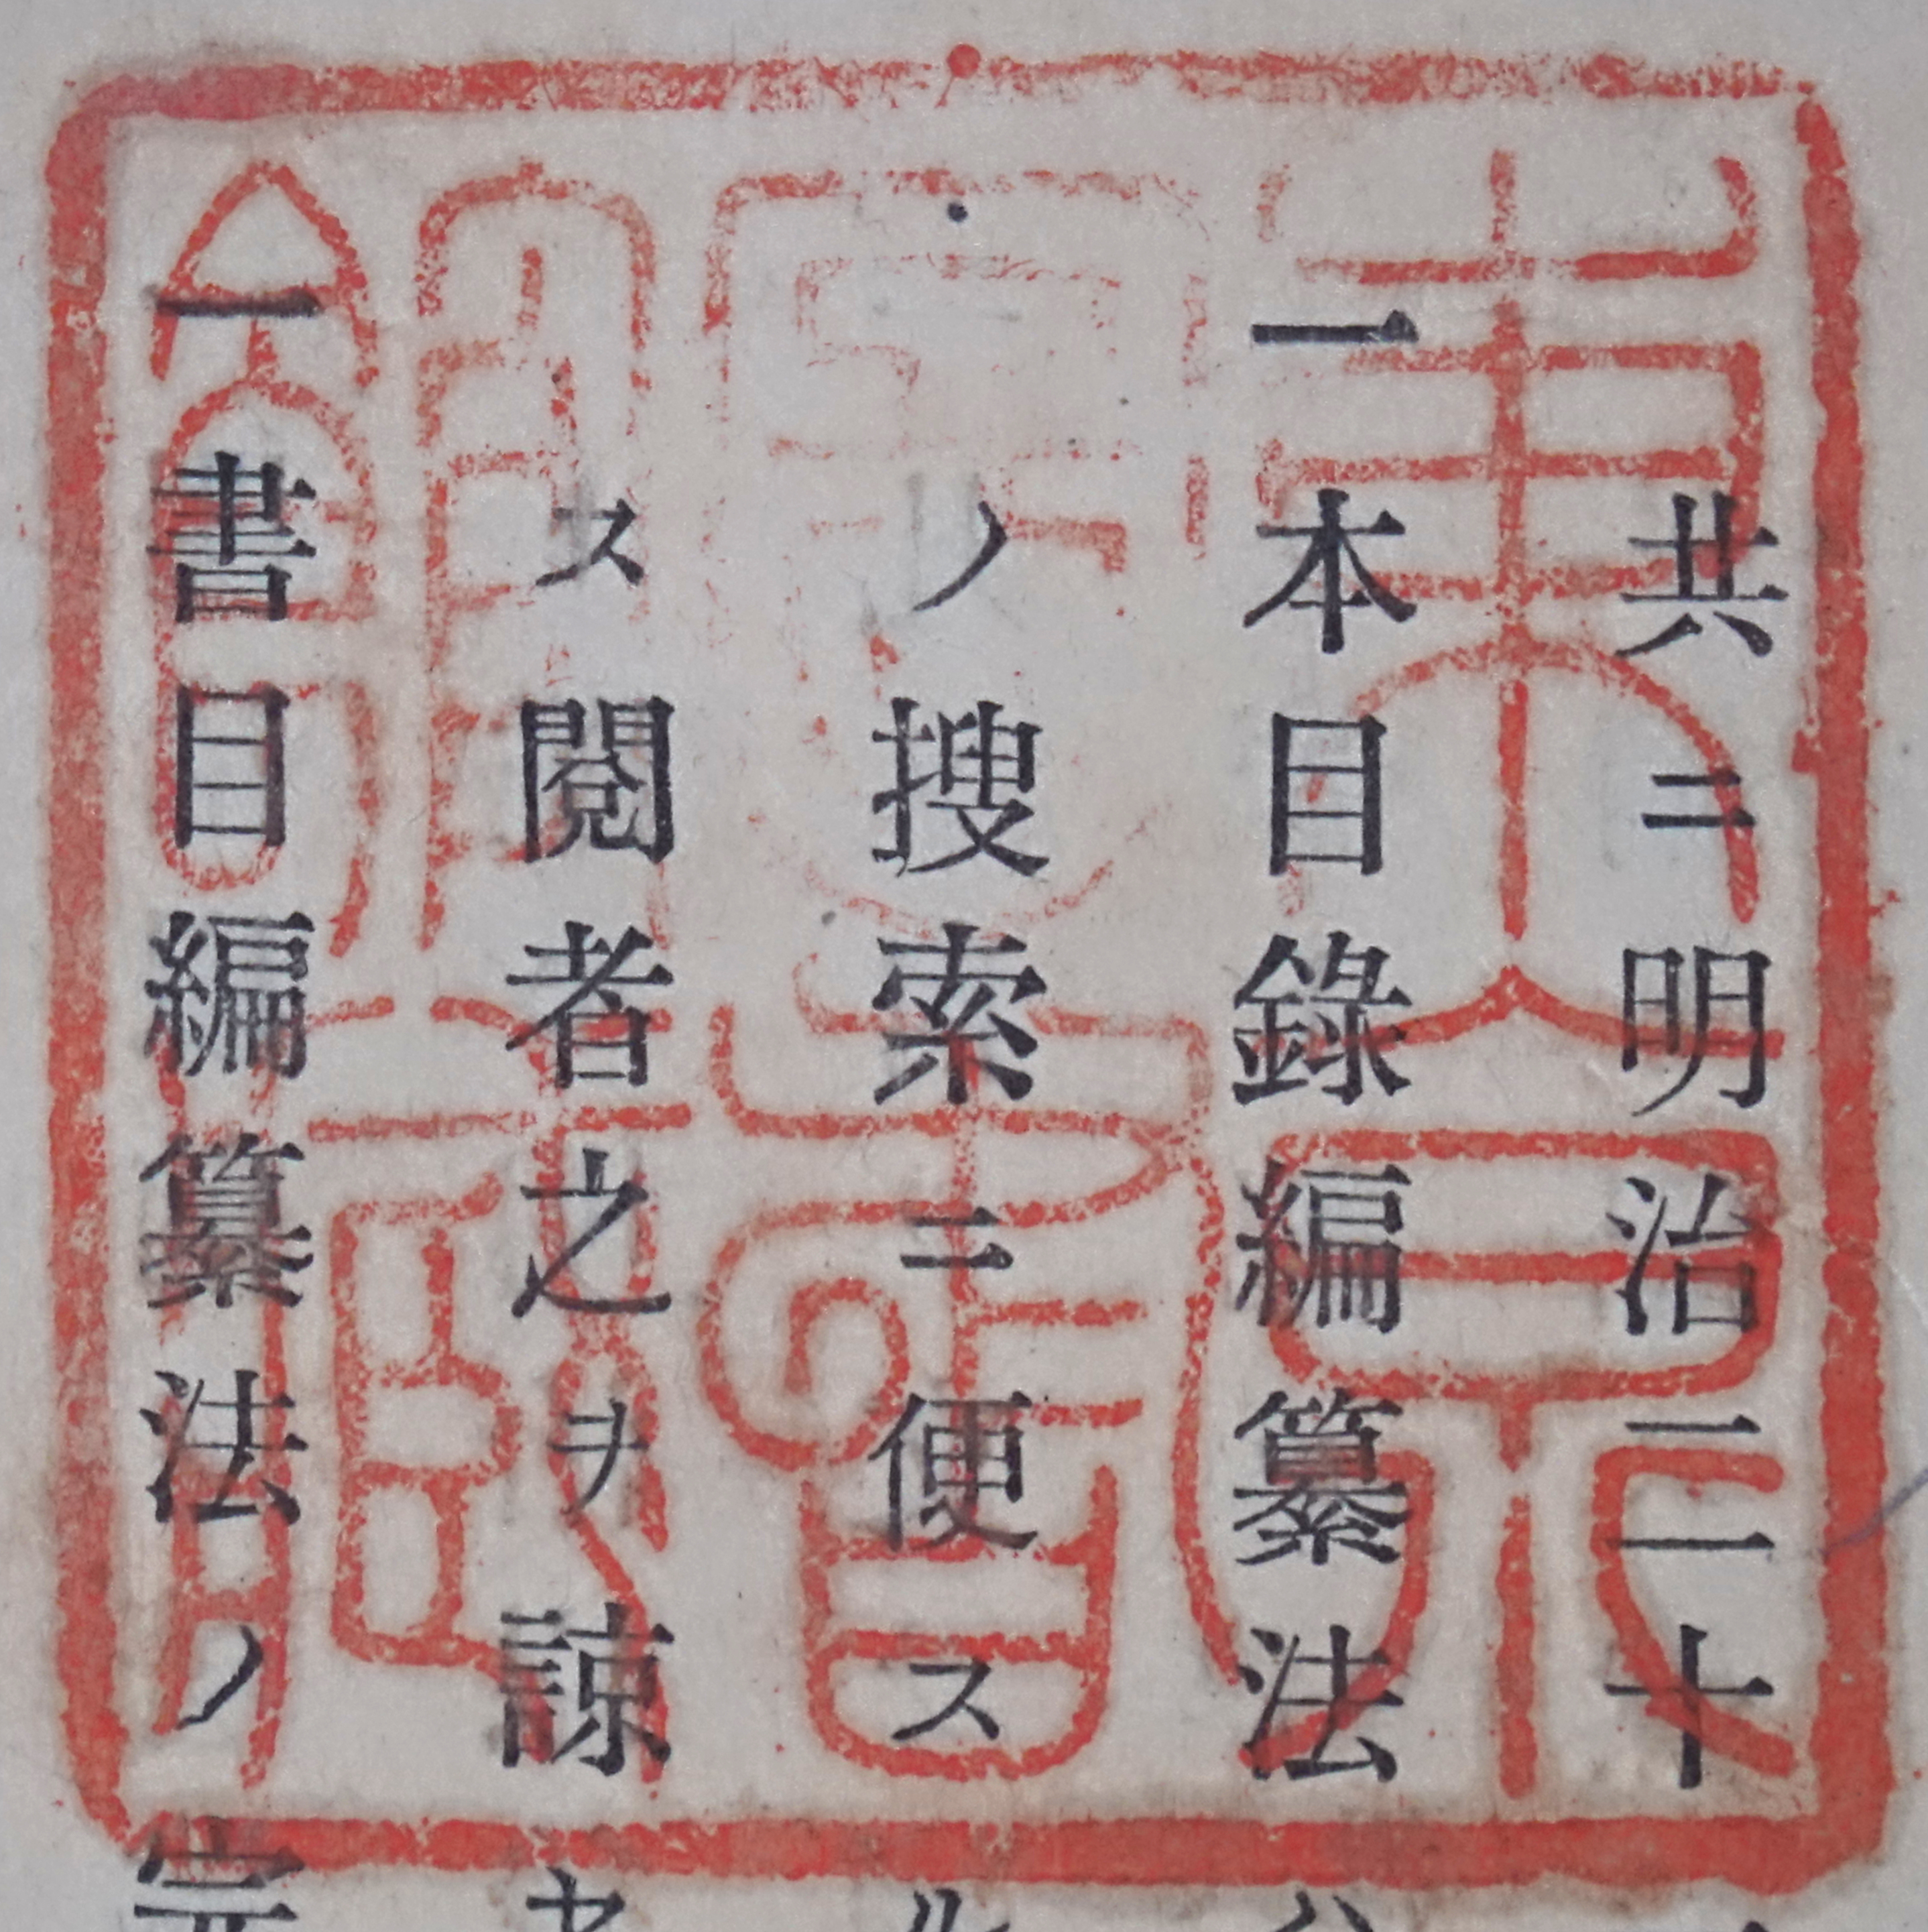 共ニ明治二十
一本目錄編纂法ハ
ノ搜索ニ便スル
ス閱者之ヲ諒セ
一書目編纂法ノ完
東京
圖書
館藏